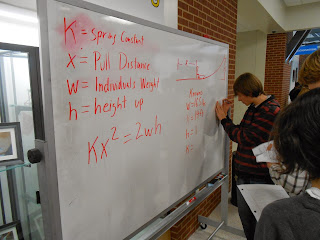 K = spring Constant
x = Pull Distance
W = Individuals Weight
h = height up
Kx² = 2wh
h
Knowns
h =
K =